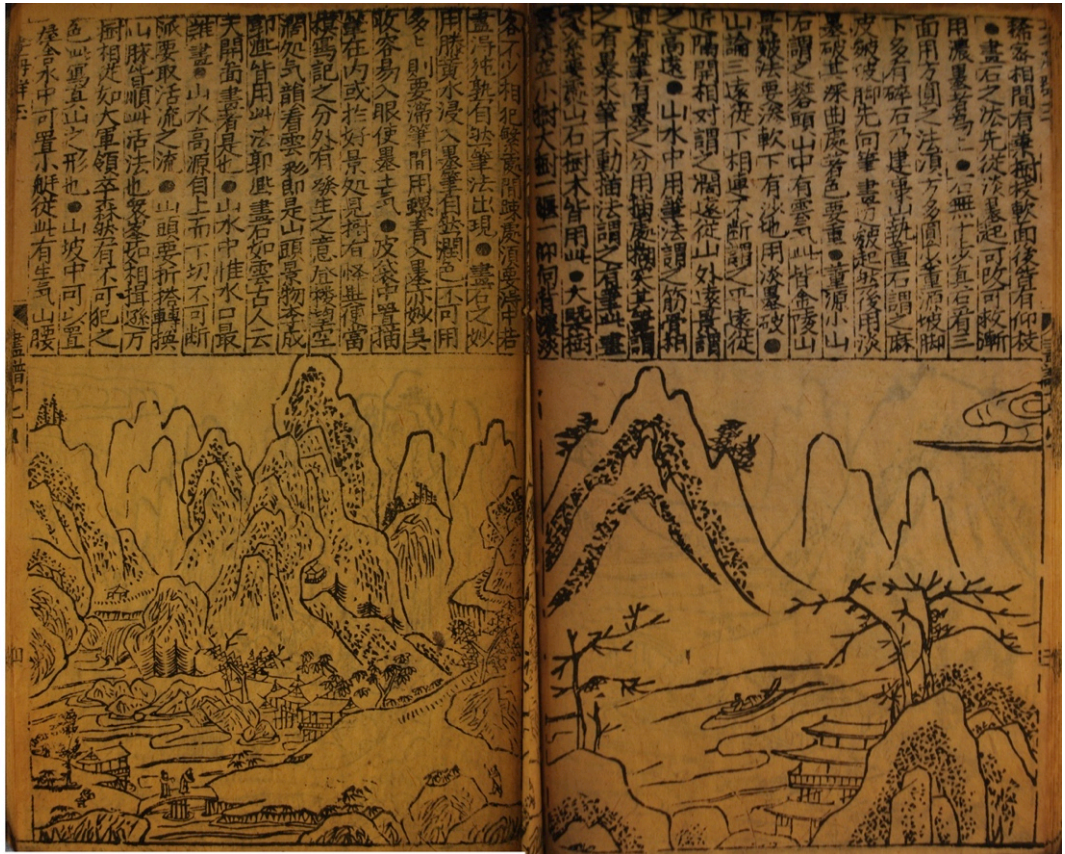 稀密相間有葉樹枝軟面後皆有仰枝
●畫石之法先從淡墨起可改可救漸
用濃墨者為上●石無十步真石看三
面用方圓之法須方多圓少董源坡脚
下多有碎石乃建康山勢董石謂之麻
皮皴坡脚先向筆畫边皴起然後用淡
墨破其深凹處着色要重●董源小山
石謂之礬頭山中有雲气此皆金陵山
景皴法要滲軟下有沙地用淡墨破●
山論三遠從下相連不断謂之平遠從
近隔開相对謂之濶遠從山外遠景謂
之高遠●山水中用筆法謂之筋骨相
連有筆有墨之分用描處糊突其墨謂
之有墨水筆不動描法謂之有筆此畫
家緊要處山石樹木皆用此●大槩樹
要填空小樹大樹一偃一仰向背濃淡
各不少相犯繁處間踈處須要得中若
畫得純熟自然筆法出現●畫石之妙
用藤黃水浸入墨筆自然潤色不可用
多多則要滯筆間用螺青入墨亦妙吳
妝容易入眼使墨士气●皮袋中置描
筆在内或於好景処見樹有怪異便當
模寫記之分外有發生之意登樓望空
濶処气韻看雲彩即是山頭景物李成
郭熙皆用此法郭熙畫石如雲古人云
天開啚畫者是也●山水中惟水口最
難畫●山水高源自上而下切不可断
派要取活流之流●山頭要折搭轉換
山脉皆順此活法也衆峯如相揖遜万
樹相從如大軍領卒森然有不可犯之
色此寫真山之形也●山坡中可以置
屋舍水中可置小艇從此有生气山腰
畫譜十七